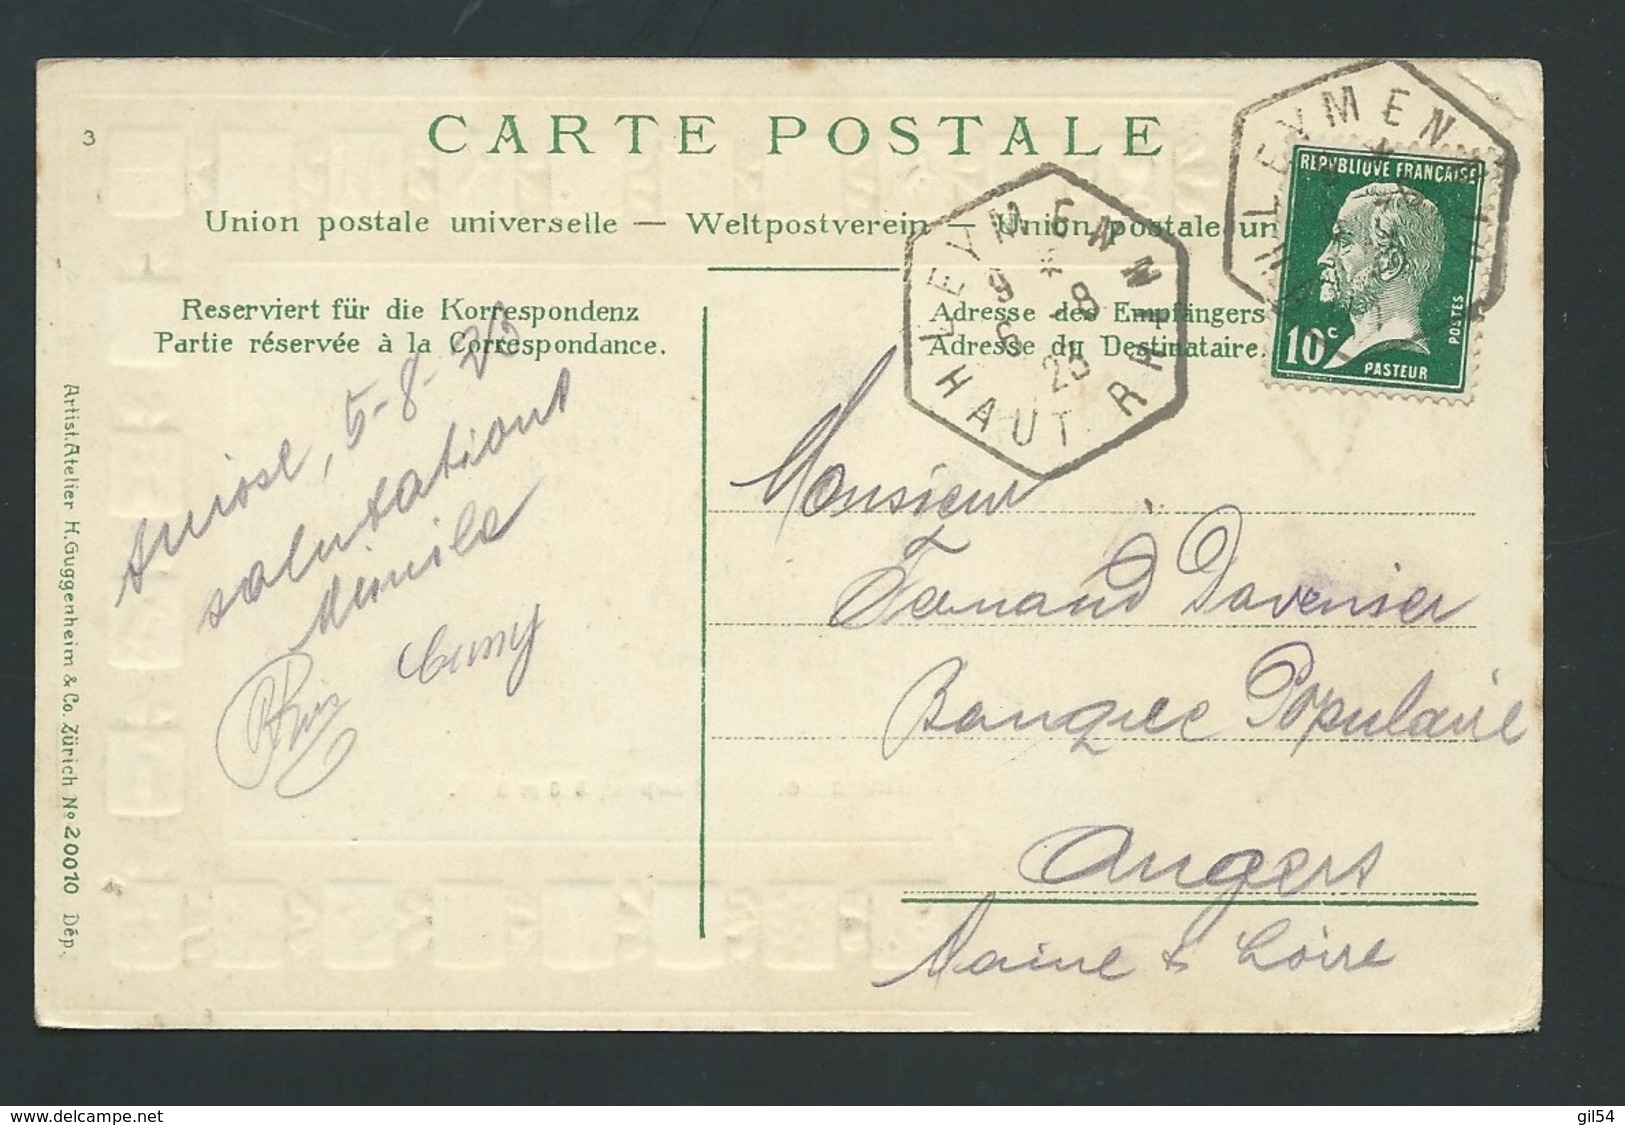 CARTE POSTALE
3
Union postale universelle — Weltpostverein — Union postale un
Reserviert für die Korrespondenz
Partie réservée à la Correspondance.
Adresse des Empfängers
Adresse du Destinataire.
LEYMEN
HAUT RH
9 * 8
6 25
LEYMEN
REPUBLIQUE FRANÇAISE
10c
POSTES
PASTEUR
5-8-25
salutations
Monsieur
Fernand Davenier
Banque Populaire
Angers
Maine & Loire
Artist. Atelier H. Guggenheim & Co. Zürich No 20010 Dép.
delcampe.net
gil54